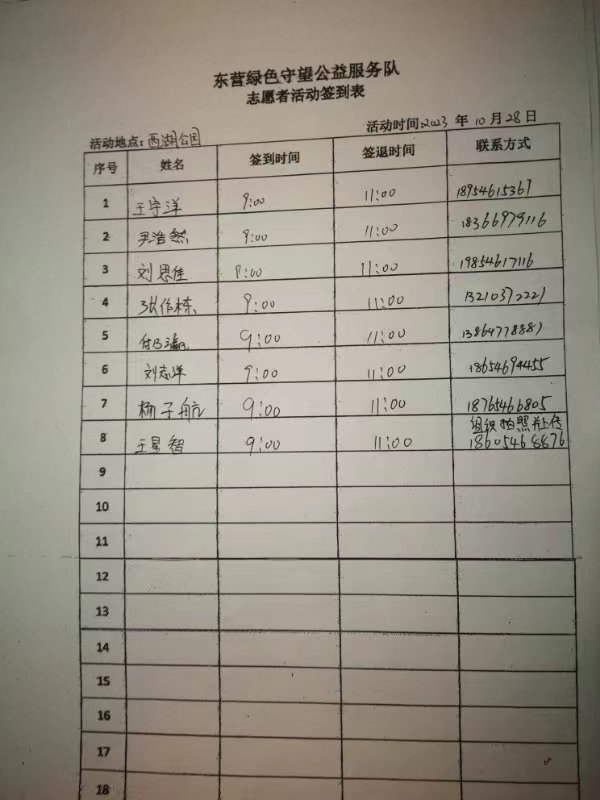 东营绿色守望公益服务队
志愿者活动签到表
活动地点:西湖公园 活动时间:2023 年 10 月 28 日
序号 姓名 签到时间 签退时间 联系方式
1 王宇洋 9:00 11:00 18954615367
2 尹浩然 9:00 11:00 18366979116
3 刘恩佳 9:00 11:00 19854617116
4 张作栋 9:00 11:00 13210372221
5 9:00 11:00 13864778887
6 刘志洋 9:00 11:00 18654694455
7 杨子航 9:00 11:00 18765466805
组织拍照并上传
8 王星智 9:00 11:00 18605468876
9
10
11
12
13
14
15
16
17
18